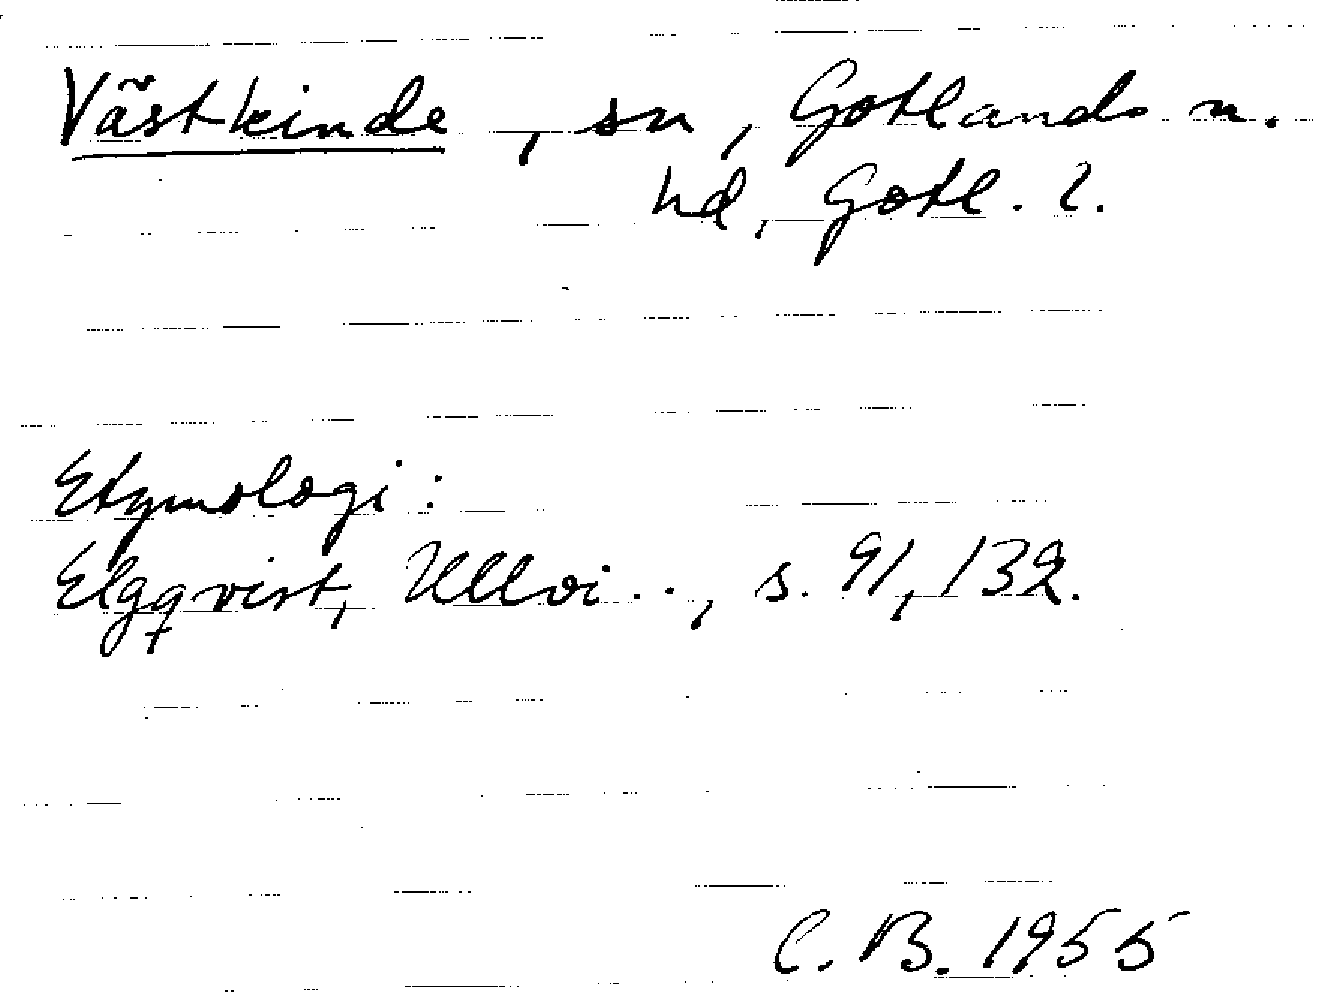 Västkinde, sn, Gotlands n.
hd, Gotl. l.
Etymologi:
Elgqvist, Ullvi.., s. 91, 132.
C. B. 1955